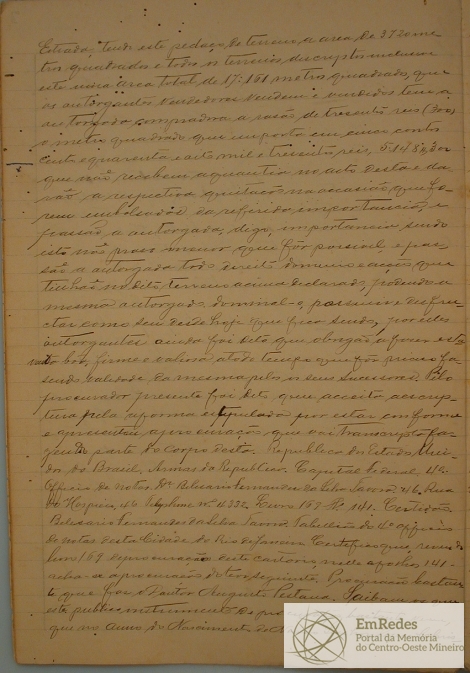 Estrada, tendo este pedaço de terreno a area de 3720 me-
tros quadrados e todos os terrenos descriptos incluem
esta uma area total de 17:161 metros quadrados, que
os outorgantes vendedores vendem e vendidos tem a
outorgada compradora a rasão de tresentos reis (300)
o metro quadrado que importa em cinco contos
cento e quarenta e oito mil e tresentos reis, 5:148\$300
que não recebem a quantia no acto desta e da
rão a respectiva quitação na occasião que fo-
rem embolsados da referida importancia, e
passão a outorgada, digo, importancia sendo
isto no praso menor que fôr possivel e pas-
são a outorgada todo direito dominio e acção que
tinhão no dito terreno acima declarado, podendo a
mesma outorgada dominal-o, possuir e desfru-
ctar como seu desde hoje que fica sendo, por elles
outorgantes ainda foi dito que obrigão a fazer es
boa, firme e valiosa a todo tempo que fôr preciso fa-
sendo validade da mesma pelos seus successores. Pelo
procurador presente foi dito que acceita a escrip-
tura pela a forma estipulada por estar conforme
e apresentou a procuração que vai transcripta fa-
zendo parte do corpo desta. Republica dos Estados Uni-
dos do Brasil, Armas da Republica. Capital Federal 4º
Officio de Notas Dr. Belisario Fernandes da Silva Tavora. 46, Rua
do Hospicio, 46 Telephone nº 4.332. Livro 169 Fls 141. Certidão
Belisario Fernandes da Silva Tavora Tabellião do 4º officio
de Notas desta Cidade do Rio de Janeiro Certifico que, revendo
livro 169 de procuração deste cartorio, nelle a folhas 141
acha-se a procuração do teor seguinte. Procuração bastan-
te que faz o Doutor Augusto Pestana. Saibam os que
este publico instrumento de pro
que no anno do Nascimento de
EmRedes
Portal da Memória
do Centro-Oeste Mineiro